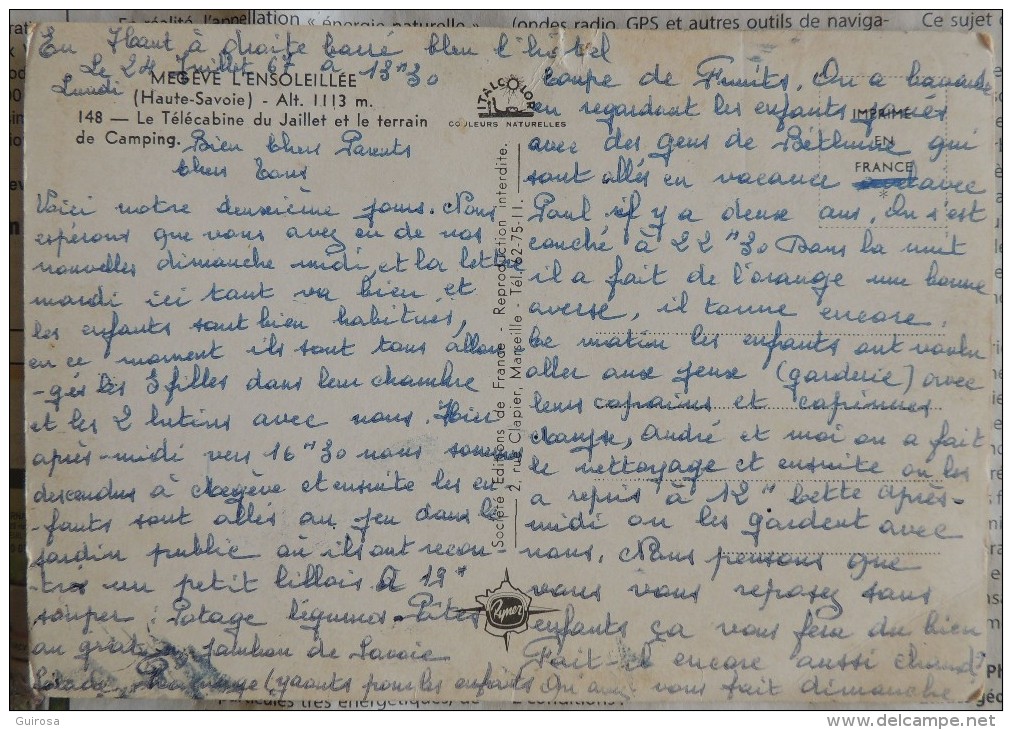 En Haut à droite barré bleu l'hôtel
Le 24 Juillet 67 à 13H30
Lundi
MEGÈVE L'ENSOLEILLÉE
(Haute-Savoie) - Alt. 1113 m.
148 — Le Télécabine du Jaillet et le terrain
de Camping.
Bien Chers Parents
Chers Tous
Voici notre deuxième jours. Nous
espérons que vous avez eu de nos
nouvelles dimanche midi, et la lettre
mardi ici tout va bien, et
les enfants sont bien habitués,
en ce moment ils sont tous allon
-gés les 3 filles dans leur chambre
et les 2 lutins avec nous. Hier
après-midi vers 16H30 nous sommes
descendus à Megève et ensuite les en
-fants sont allés au jeu dans le
jardin public où ils ont recon-
-trés un petit lillois. à 19H
souper : Potage légumes. Pâtes
au gratin, Jambon de Savoie
Salade, Fromage (yaourts pour les enfants
ITALCOLOR
COULEURS NATURELLES
Société Editions de France - Reproduction interdite.
2, rue Clapier, Marseille - Tél. 62-75-11.
Rymer
IMPRIMÉ
EN
FRANCE
coupe de Fruits. On a bavardé
en regardant les enfants jouer
avec des gens de Béthune qui
sont allés en vacance avec
Paul il y a deux ans. On s'est
couché à 22H30 Dans la nuit
il a fait de l'orange une bonne
averse, il tonne encore.
Ce matin les enfants ont voulu
aller aux jeux (garderie) avec
leurs copains et copinnes
André et moi on a fait
le nettoyage et ensuite on les
a repris à 12H cette après-
midi on les gardent avec
nous. Nous pensons que
vous vous reposez sans
enfants ça vous fera du bien
Fait-il encore aussi chaud?
vous fait dimanche
En réalité, l'appellation « énergie naturelle »
(ondes radio, GPS et autres outils de naviga-
Ce sujet
particules très énergétiques, de
2 conditions.
Guirosa
www.delcampe.net